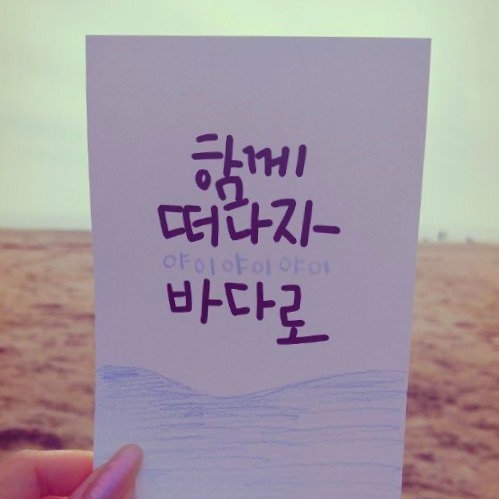 함께
떠나자
야이야이야이
바다로